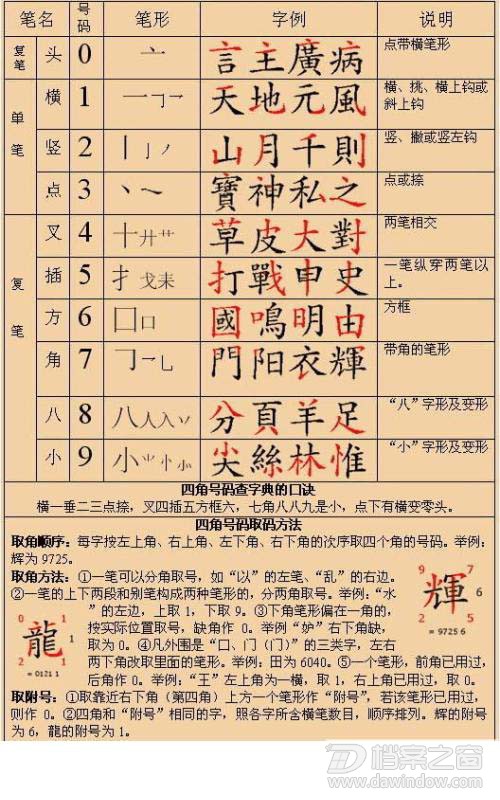 笔名 号码 笔形 字例 说明
复笔 头 0 亠 言主廣病 点带横笔形
单笔 横 1 天地元風 横、挑、横上钩或斜上钩
竖 2 山月千則 竖、撇或竖左钩
点 3 寶神私之 点或捺
复笔 叉 4 十廾艹 草皮大對 两笔相交
插 5 扌戈耒 打戰申史 一笔纵穿两笔以上。
方 6 囗口 國鳴明由 方框
角 7 門阳衣輝 带角的笔形
八 8 八人入丷 分頁羊足 “八”字形及变形
小 9 小 尖絲林惟 “小”字形及变形
四角号码查字典的口诀
横一垂二三点捺，叉四插五方框六，七角八八九是小，点下有横变零头。
四角号码取码方法
取角顺序：每字按左上角、右上角、左下角、右下角的次序取四个角的号码。举例：
辉为 9725。
取角方法：①一笔可以分角取号，如“以”的左笔、“乱”的右边。
②一笔的上下两段和别笔构成两种笔形的，分两角取号。举例：“水
”的左边，上取 1，下取 9。③下角笔形偏在一角的，
按实际位置取号，缺角作 0。举例“妒”右下角缺，
取为 0。④凡外围是“口、门（門）”的三类字，左右
两下角改取里面的笔形。举例：田为 6040。⑤一个笔形，前角已用过，
后角作 0。举例：“王”左上角为一横，取 1，右上角已用过，取 0。
0 1
龍
2 1
= 0121 1
9 7
輝 6
2 5
= 9725 6
取附号：①取靠近右下角（第四角）上方一个笔形作“附号”，若该笔形已用过，
则作 0。②四角和“附号”相同的字，照各字所含横笔数目，顺序排列。辉的附号
为 6，龍的附号为 1。
档案之窗
www.dawindow.com